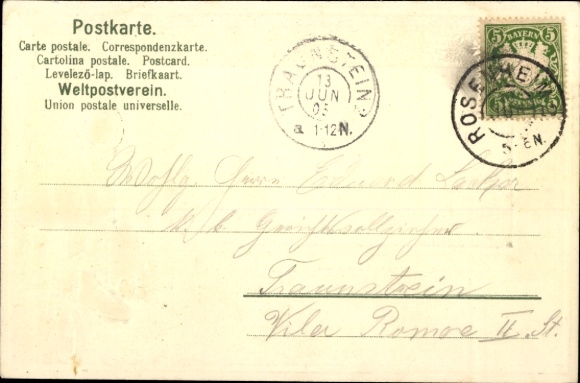 Postkarte.
Carte postale. Correspondenzkarte.
Cartolina postale. Postcard.
Levelező-lap. Briefkaart.
Weltpostverein.
Union postale universelle.
TRAUNSTEIN
13
JUN
05
a. 1-12N.
5 BAYERN 5
ROSENHEIM
5-6N.
Wohlg. Herrn Eduard
k. b. Gerichtsvollzieher.
Traunstein
Villa Romoe II. St.